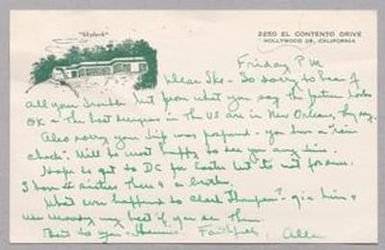 "Skylark"
2250 EL CONTENTO DRIVE
HOLLYWOOD 28, CALIFORNIA
Friday P.M
Dear Ike - So sorry to hear of
all your trouble but from what you say the future looks
OK & the best surgeons in the US are in New Orleans,
Also sorry your trip was postponed - you have a "rain
check". Will be most happy to see you any time.
Hope to get to DC for Easter but to not for sure.
I have sisters there & a brother.
What ever happened to Clark Thompson? - give him &
my best if you see them.
Best to you & Faithfully,